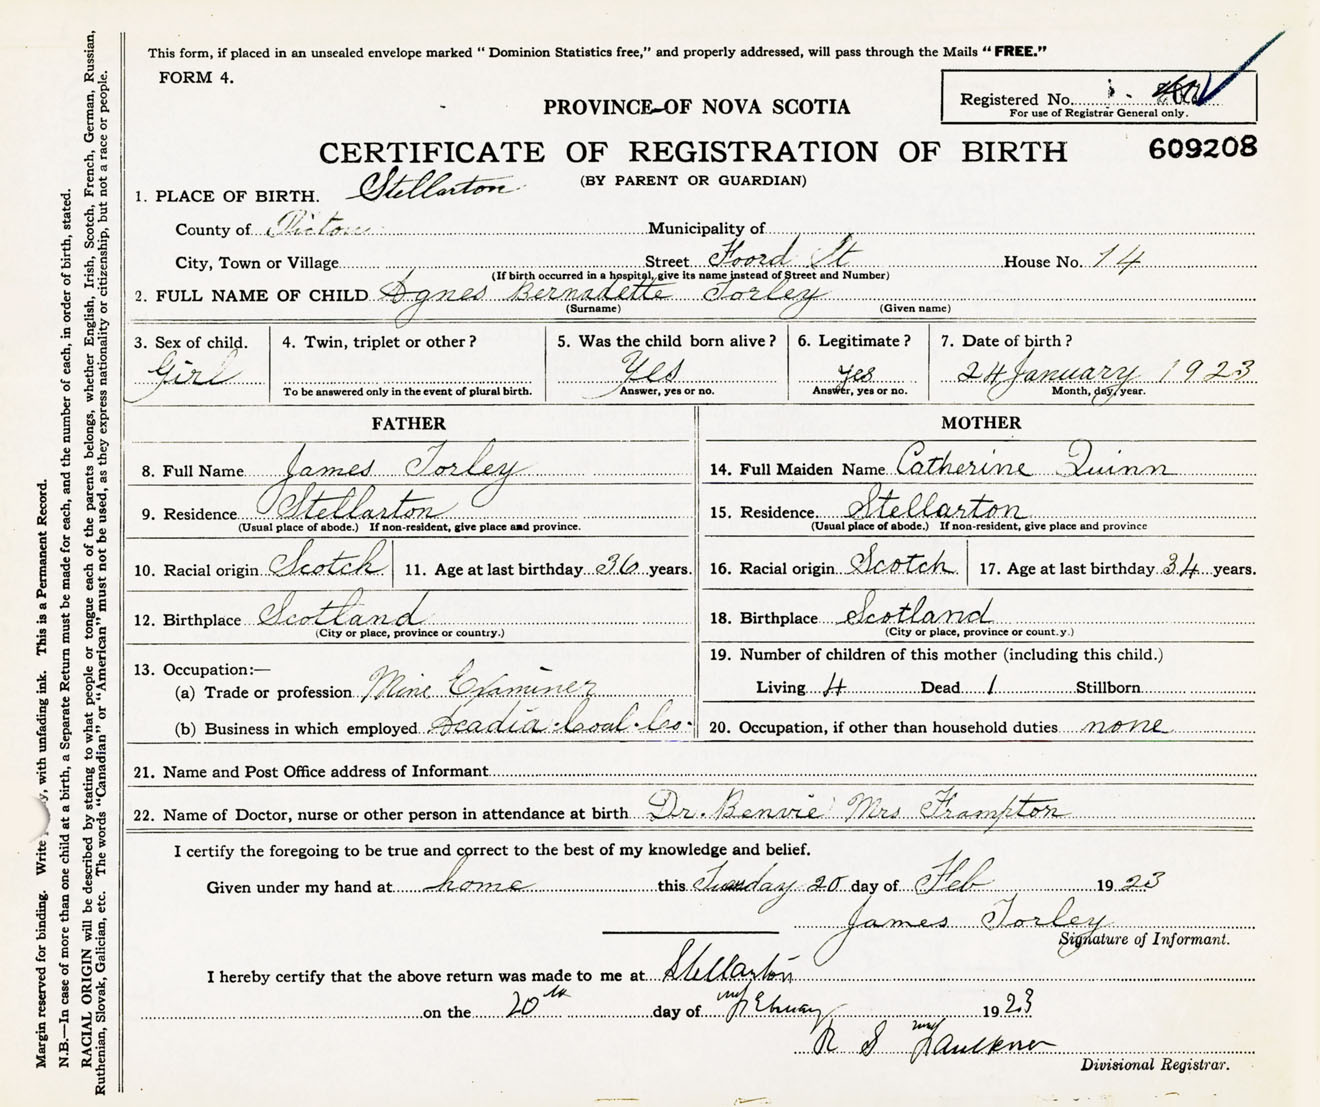 This form, if placed in an unsealed envelope marked " Dominion Statistics free," and properly addressed, will pass through the Mails "FREE."
FORM 4.
Registered No.
For use of Registrar General only.
PROVINCE OF NOVA SCOTIA
CERTIFICATE OF REGISTRATION OF BIRTH 609208
(BY PARENT OR GUARDIAN)
1. PLACE OF BIRTH. Stellarton
County of Pictou Municipality of
City, Town or Village Street Foord St House No. 14
(If birth occurred in a hospital, give its name instead of Street and Number)
2. FULL NAME OF CHILD Agnes Bernadette Torley
(Surname) (Given name)
3. Sex of child. 4. Twin, triplet or other? 5. Was the child born alive? 6. Legitimate? 7. Date of birth?
Girl Yes yes 24 January 1923
To be answered only in the event of plural birth. Answer, yes or no. Answer, yes or no. Month, day, year.
FATHER MOTHER
8. Full Name James Torley 14. Full Maiden Name Catherine Quinn
9. Residence Stellarton 15. Residence. Stellarton
(Usual place of abode.) If non-resident, give place and province. (Usual place of abode.) If non-resident, give place and province
10. Racial origin Scotch 11. Age at last birthday 36 years. 16. Racial origin Scotch 17. Age at last birthday 34 years.
12. Birthplace Scotland 18. Birthplace Scotland
(City or place, province or country.) (City or place, province or count.y.)
13. Occupation:— 19. Number of children of this mother (including this child.)
(a) Trade or profession Mine Examiner Living 4 Dead 1 Stillborn
(b) Business in which employed Acadia Coal Co. 20. Occupation, if other than household duties none
21. Name and Post Office address of Informant
22. Name of Doctor, nurse or other person in attendance at birth Dr. Benvie Mrs Frampton
I certify the foregoing to be true and correct to the best of my knowledge and belief.
Given under my hand at home this Tuesday 20 day of Feb 1923
James Torley
Signature of Informant.
I hereby certify that the above return was made to me at Stellarton
on the 20th day of February 1923
R S Faulkner
Divisional Registrar.
Margin reserved for binding. Write , with unfading ink. This is a Permanent Record.
N.B.—In case of more than one child at a birth, a Separate Return must be made for each, and the number of each, in order of birth, stated.
RACIAL ORIGIN will be described by stating to what people or tongue each of the parents belongs, whether English, Irish, Scotch, French, German, Russian,
Ruthenian, Slovak, Galician, etc. The words "Canadian" or "American" must not be used, as they express nationality or citizenship, but not a race or people.